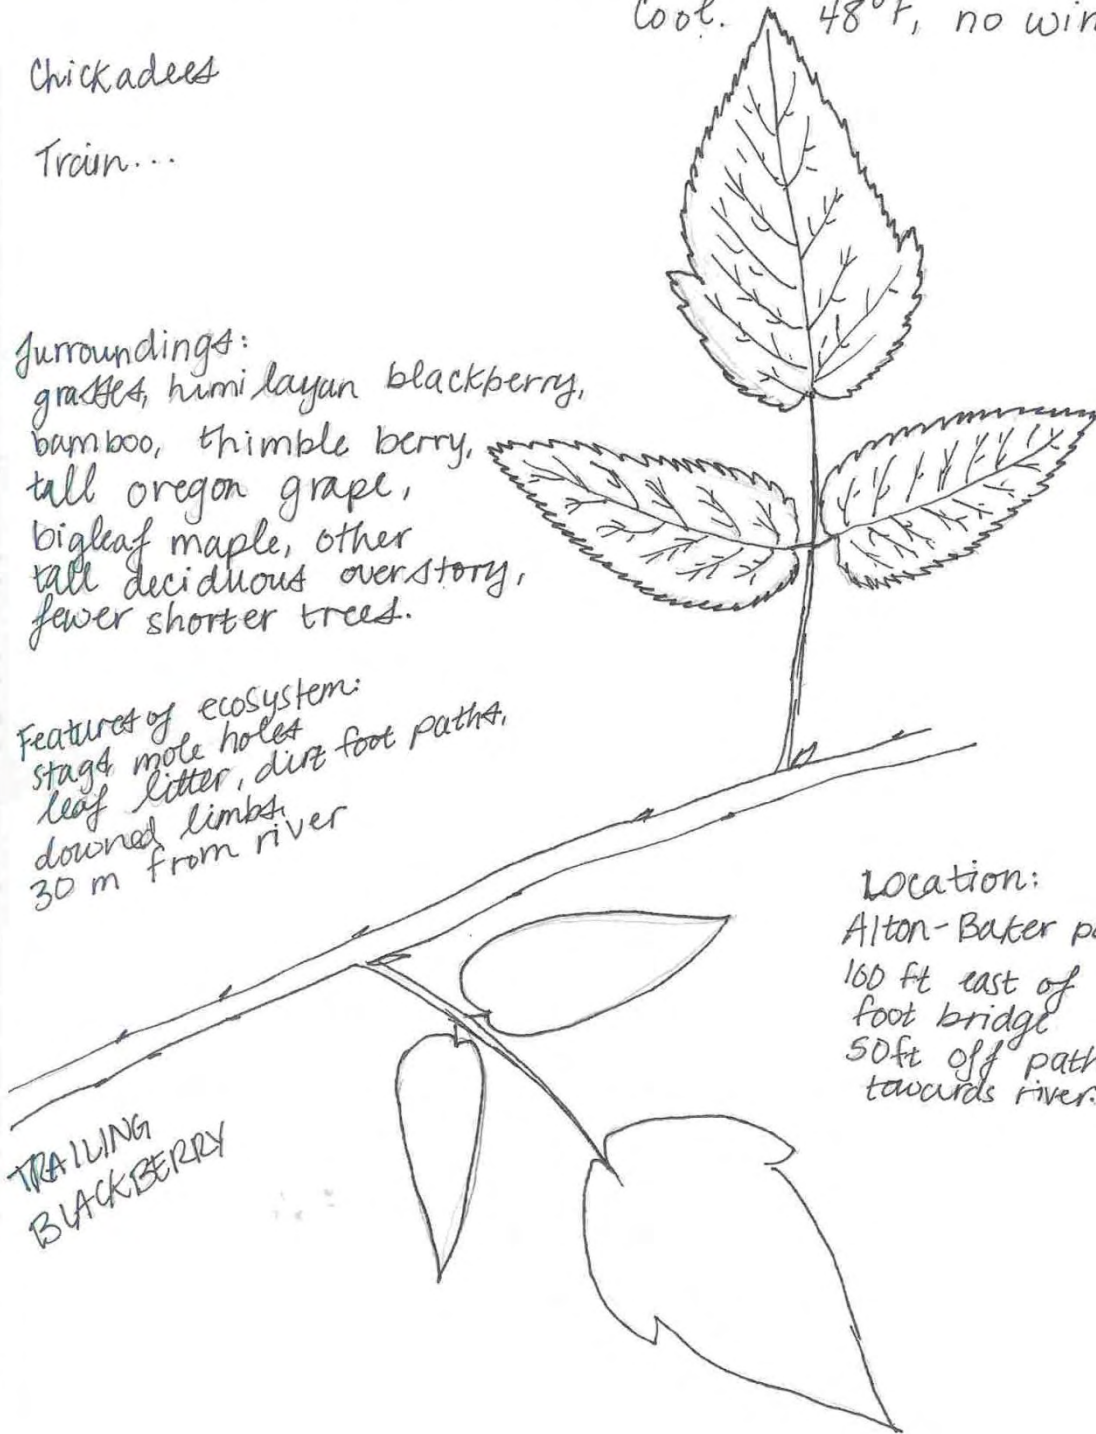 Cool. 48°F, no win
Chickadees
Train...
Surroundings:
grasses, himilayan blackberry,
bamboo, thimble berry,
tall oregon grape,
bigleaf maple, other
tall deciduous overstory,
fewer shorter trees.
Features of ecosystem:
stags, mole holes
leaf litter, dirt foot paths,
downed limbs,
30 m from river
Location:
Alton-Baker pa
100 ft east of
foot bridge
50ft off path
towards river.
TRAILING
BLACKBERRY